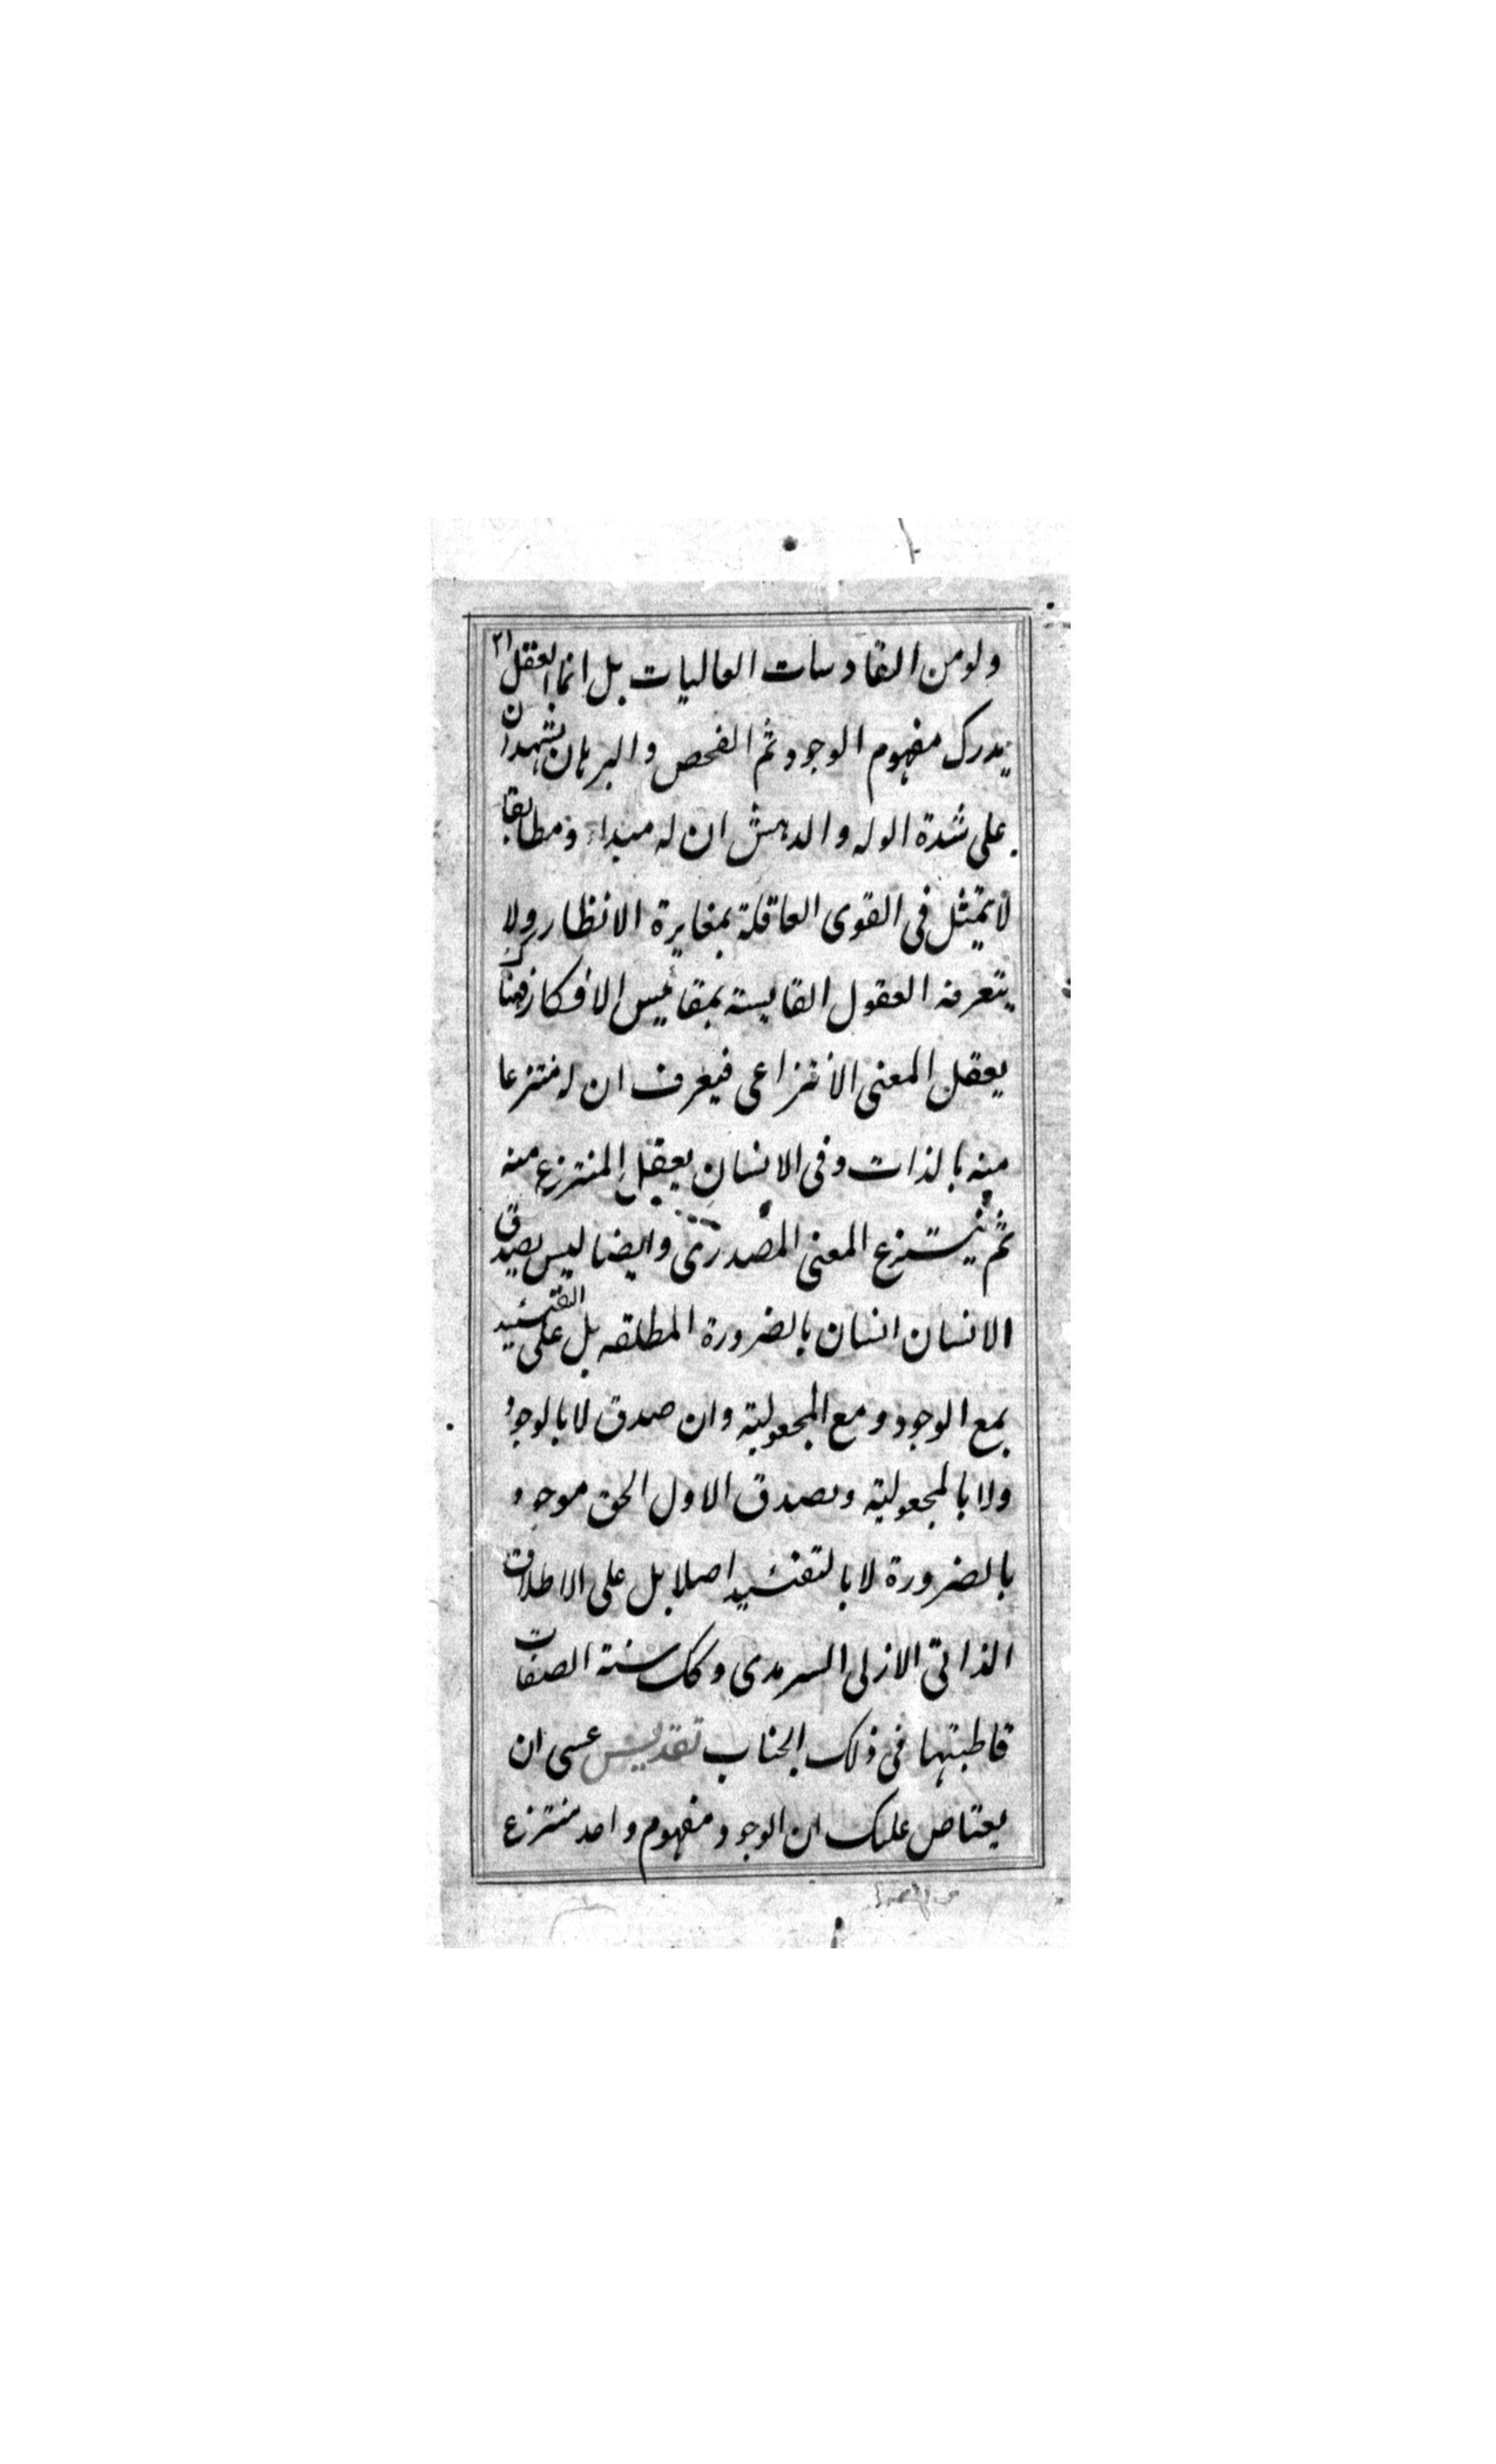 ٢١
ولو من القادسات العاليات بل انما العقل
يدرك مفهوم الوجود ثم الفحص والبرهان يشهدان
على شدة الوله والدهش ان له مبداء ومطابقا
لا يتمثل فى القوى العاقلة بمغايرة الانظار ولا
يتعرفه العقول القايسة بمقائيس الافكار فهناك
يعقل المعنى الانتزاعى فيعرف ان له منتزعا
منه بالذات وفى الانسان يعقل المنتزع منه
ثم ينتزع المعنى المصدرى وايضا ليس يصدق
الانسان انسان بالضرورة المطلقه بل على التقئيد
بمع الوجود ومع المجعولية وان صدق لا بالوجود
ولا بالمجعولية ويصدق الاول الحق موجود
بالضرورة لا بالتقئيد اصلا بل على الاطلاق
الذاتى الازلى السرمدى وكك سنة الصفات
قاطبتها فى ذلك الجناب تقديس عسى ان
يعتاص عليك ان الوجود مفهوم واحد منتزع